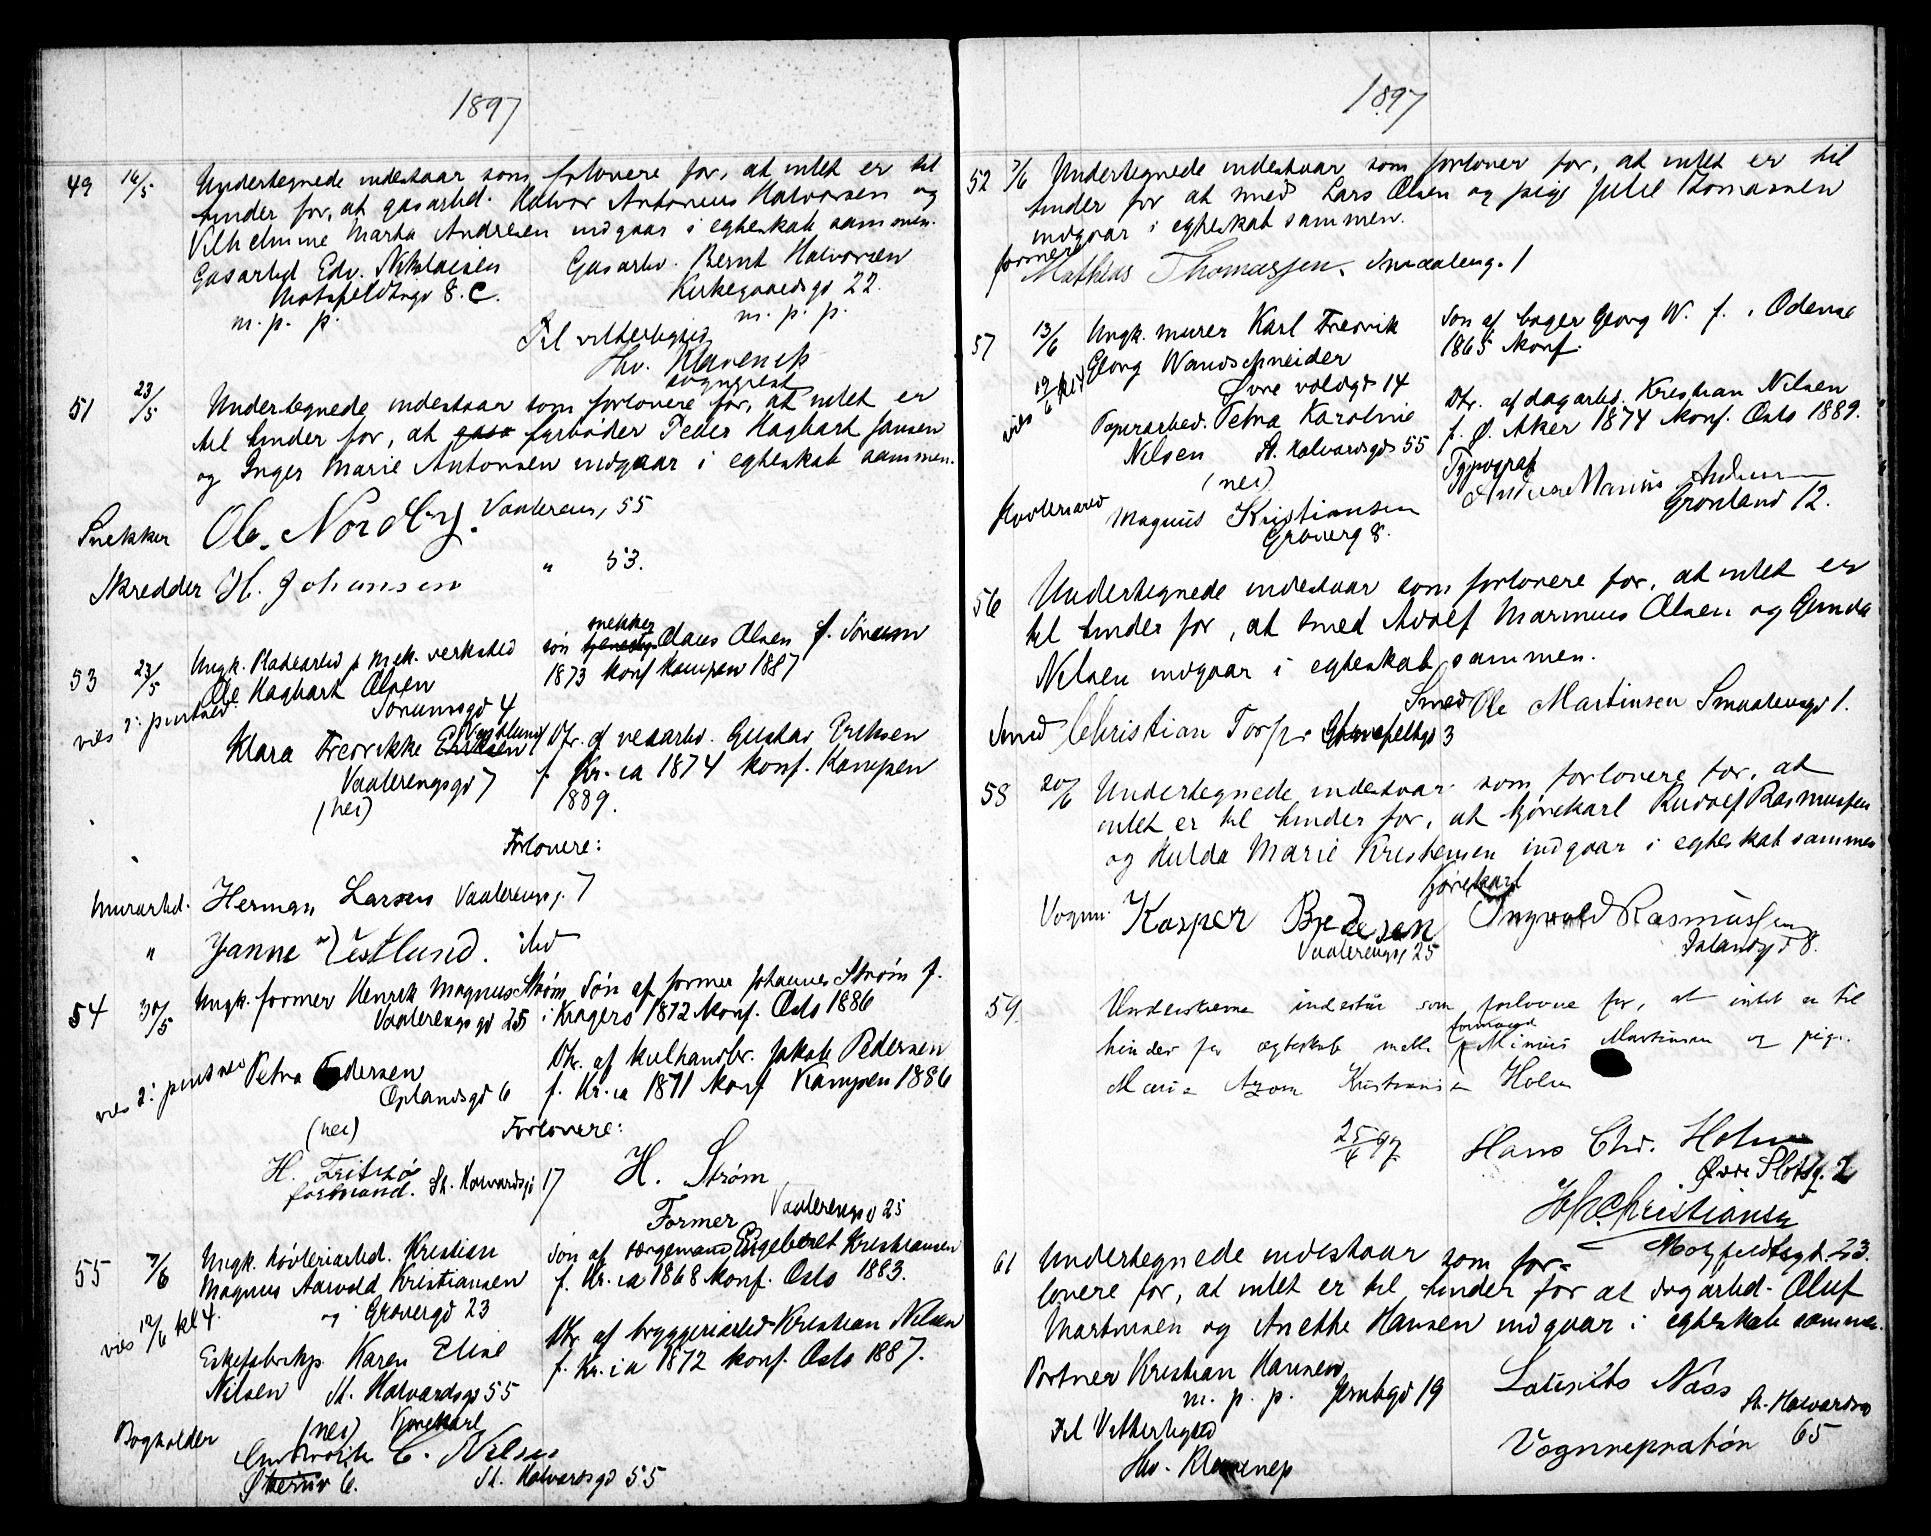 1897
49 16/5 Undertegnede indestaar som forlovere for, at intet er til
hinder for, at gasarbd. Halvor Antonius Halvorsen og
Vilhelmine Marta Andresen indgaar i egteskab sammen.
Gasarbd Edv. Nikolaisen Gasarb. Bernt Halvorsen
Motzfeldtsgd 8.C. Kirkegaardsgd 22.
m. p. p. m. p. p.
Til vitterlighed
Hv. Klavenes
sogneprest
51 23/5 Undertegnede indestaar som forlovere for, at intet er
til hinder for, at fyrbøder Peder Hagbart Jansen
og Inger Marie Antonsen indgaar i egteskab sammen.
Snekker Ole Nordby. Vaalereng, 55
Skredder H. Johansen " 53.
53 23/5 Ungk. Pladearbd p mek. verksted
Ole Hagbart Olsen
Sørumsgd 4
vies 2: pintsed
søn snekker Olaus Olsen f. Sørum
1873 konf Kampen 1887
Klara Fredrikke Eriksen (Vestlund)
Vaalerengsgd 7
(nei)
Dtr. af vedarbd. Gustav Eriksen
f. Kr.ia 1874 konf. Kampen
1889.
Forlovere:
Murarbd. Herman Larsen Vaalerengg. 7
" Janne Vestlund. ibd
54 30/5 Ungk. former Henrik Magnus Strøm
Vaalerengsgd 25
Søn af former Johannes Strøm f.
i Kragerø 1872 konf. Oslo 1886
vies 2: pintsed Petra Pedersen
Oplandsgd 6
(nei)
Dtr. af kulhandlr. Jakob Pedersen
f. Kr.ia 1871 konf Kampen 1886
Forlovere:
H. Fritzø H. Strøm
formand. St. Halvardsgd 17
Former Vaalerengsgd 25
55 7/6 Ungk. høvleriarbd. Kristian
Magnus Aarvold Kristiansen
Grøvergd 23
vies 12/6 kl 4.
Søn af sørgemand Engebret Kristiansen
f. Kr.ia 1868 konf. Oslo 1883.
Eskefabrikp. Karen Elise
Nilsen St. Halvardsgd 55
(nei)
Dtr af bryggeriarbd Kristian Nilsen
f. Kr.ia 1872 konf. Oslo 1887.
Bogholder Kjørekarl
C. Nilsen
6. St. Halvardsgd 55
1897
52 7/6 Undertegnede indestaar som forlover for, at intet er til
hinder for at smed Lars Olsen og pige Julie Thomassen
indgaar i egteskab sammen.
former
Mathias Thomassen. Smaaleng. 1
57 13/6 Ungk. murer Karl Fredrik
Georg Wandschneider
Øvre voldgd 14
Søn af bager Georg W. f. i Odense
1865 konf.
vies 19/6
Papirarbed. Petra Karoline
Nilsen St. Halvardsgd 55
(nei)
Dtr. af dagarbd. Kristian Nilsen
f. Ø. Aker 1874 konf. Oslo 1889.
Typograf
Høvleriarbd Magnus Kristiansen
Grøverg 8.
Andreas Marius
Grønland 12.
56 Undertegnede indestaar som forlovere for, at intet er
til hinder for, at smed Adolf Marinius Olsen og Gunda
Nilsen indgaar i egteskab sammen.
Smed Ole Martinsen Smaalensgd 1.
Smed Christian Torp. 3
58 20/6 Undertegnede indestaar som forlovere for, at
intet er til hinder for, at kjørekarl Rudolf Rasmussen
og Hulda Marie Kristensen indgaar i egteskab sammen
Kjørekarl
Vognm. Kasper Pedersen Ingvald Rasmussen
Vaalerengg, 25 Jalandsgd 8.
59. Underskrevne indestår som forlovere for, at intet er til
hinder for ægteskab mell. formand Minius Martinsen og pige
Maria Holm
25/6 97. Hans Chr. Holm
Øvre Slotsg. 2
H. Christiansen
Motzfeldtsgd. 23.
61 Undertegnede indestaar som for-
lovere for, at intet er til hinder for at dagarbd. Oluf
Martinsen og Anethe Hansen indgaar i egteskab sammen.
Portner Kristian Hansen
m. p. p. Jernbgd 19
Lauritz Næss
St. Halvardsg
65
Til Vitterlighed
Hv. Klavenes
Vognreperatør